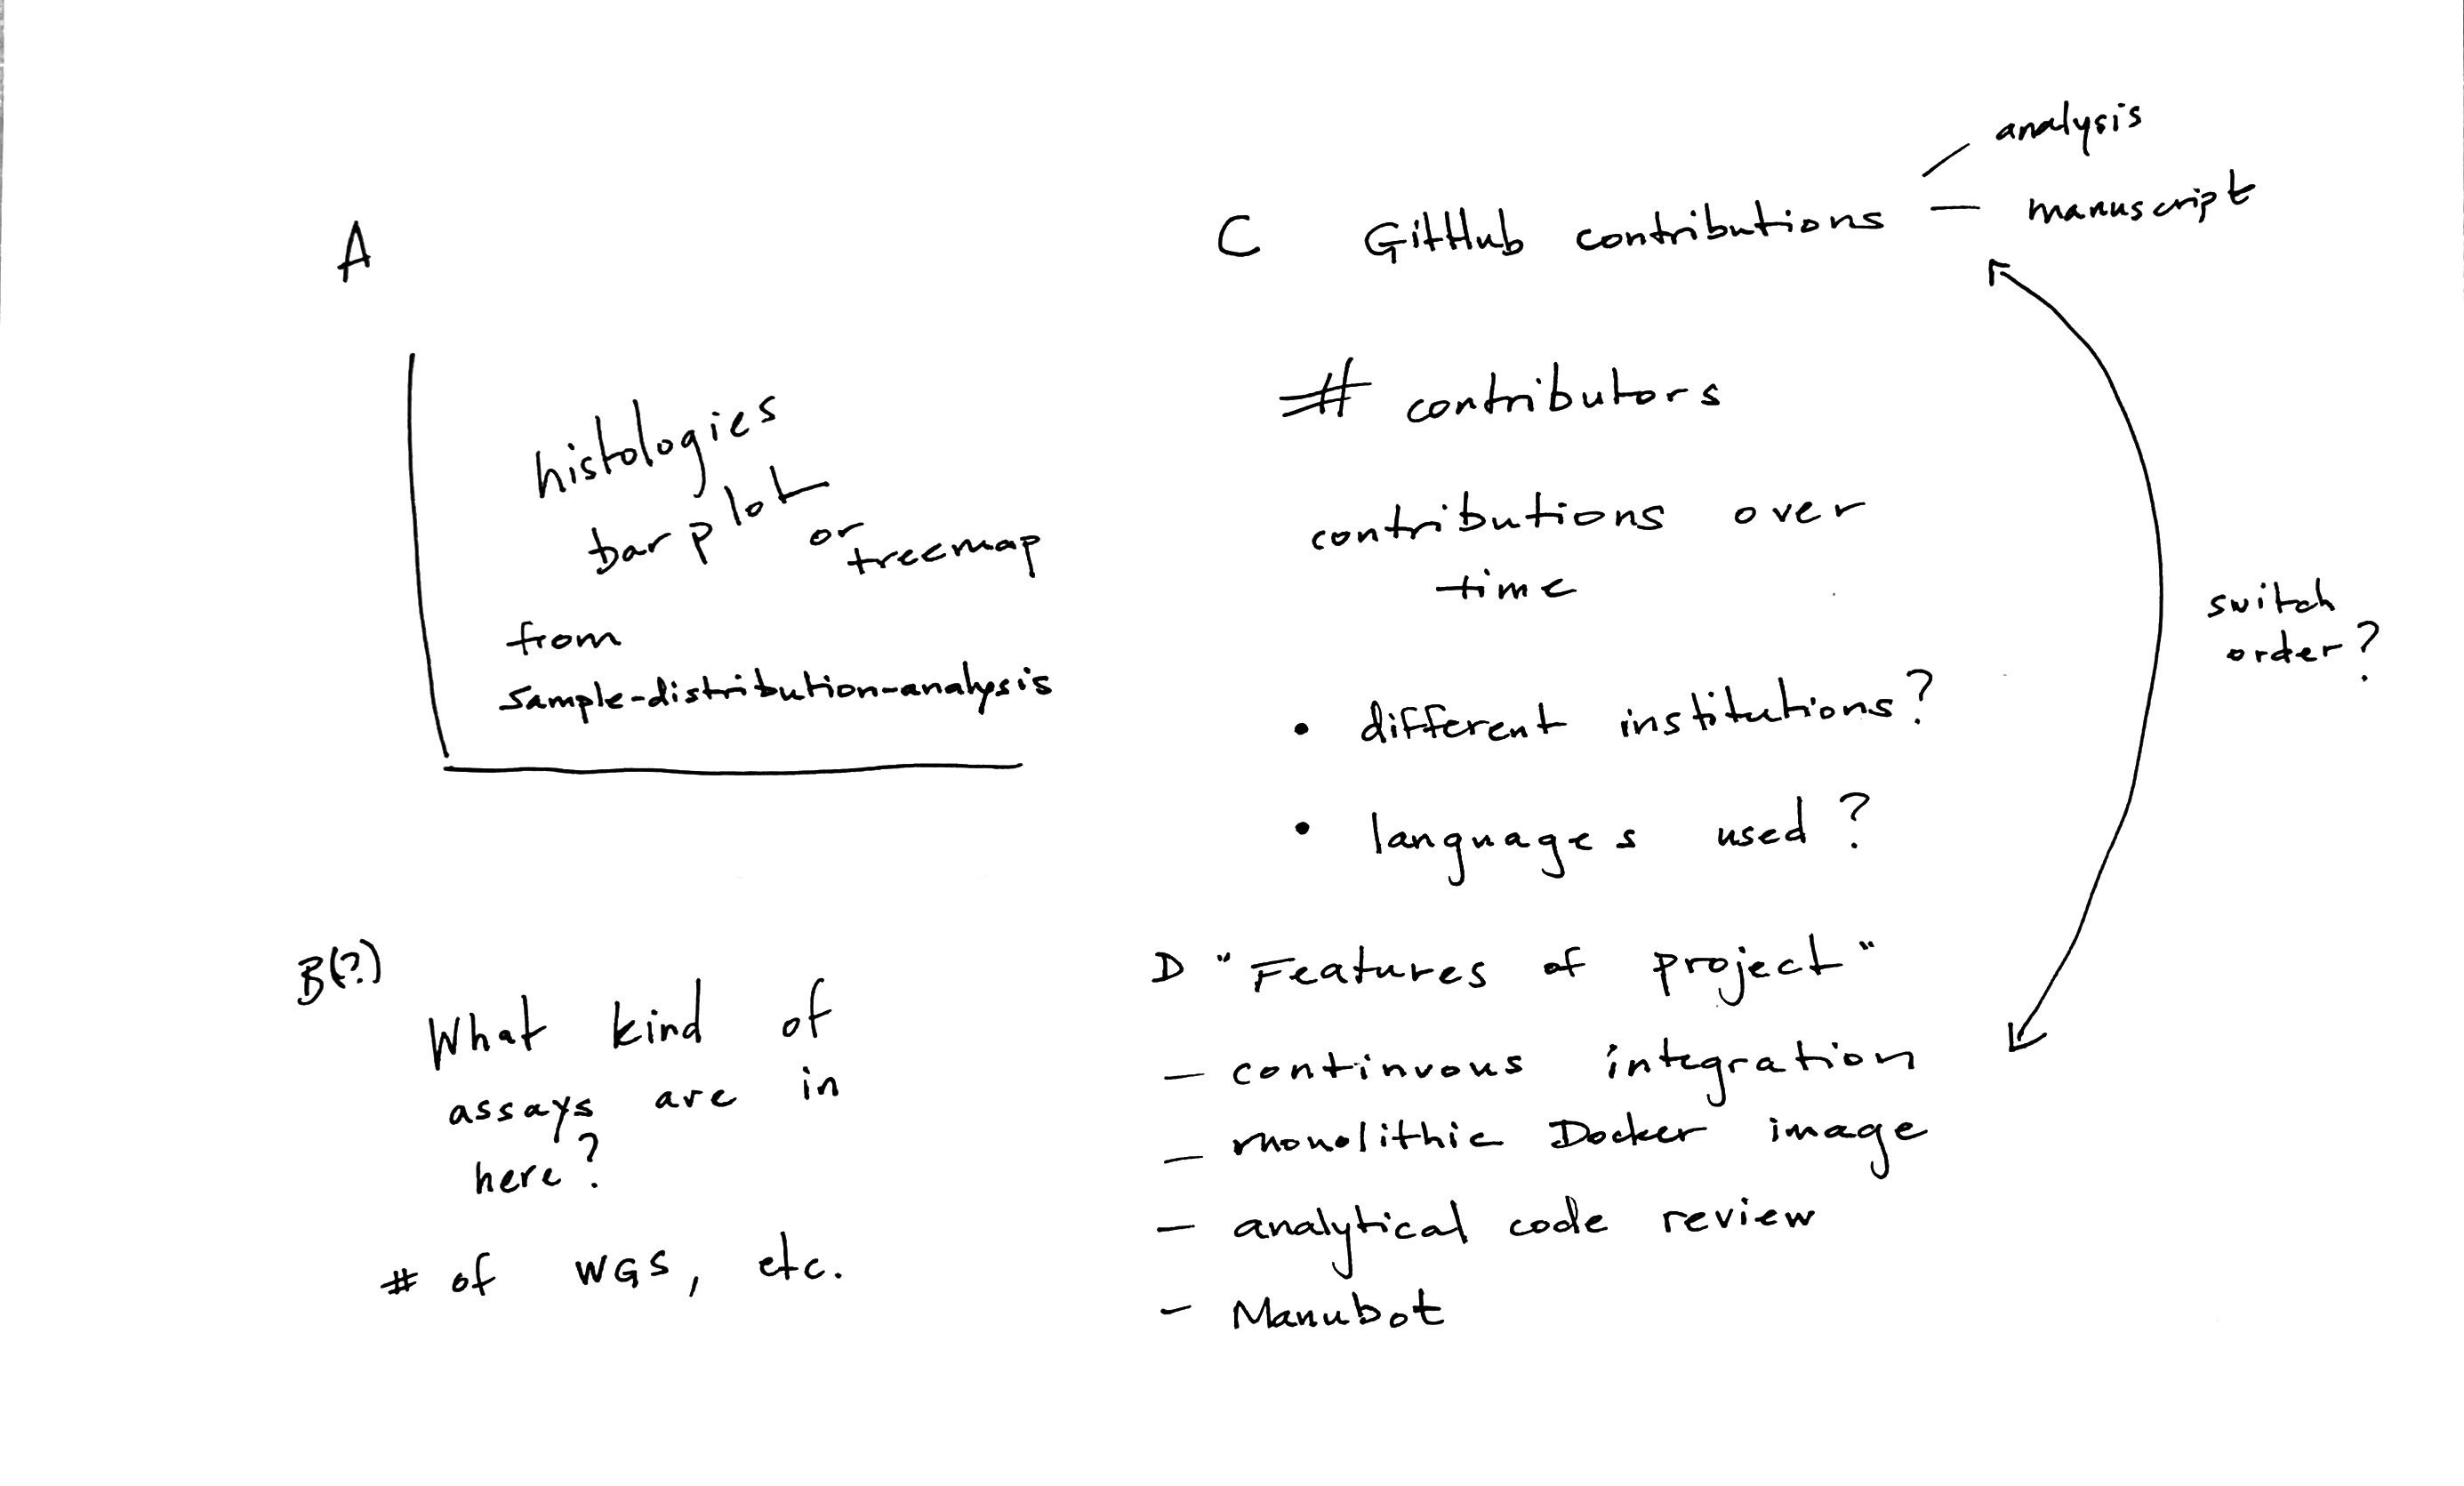 A
histologies
bar plot
or
treemap
from
sample-distribution-analysis
B(?)
What kind of
assays are in
here?
# of WGS, etc.
C GitHub contributions
— analysis
— manuscript
# contributors
contributions over
time
• different institutions?
• languages used?
switch
order?
D "Features of project"
— continuous integration
— monolithic Docker image
— analytical code review
— Manubot